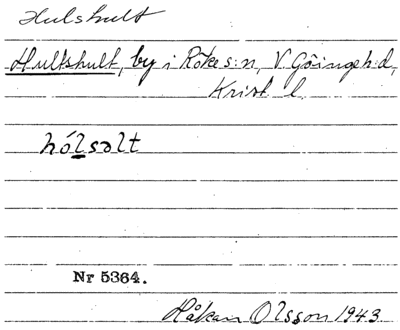 Hulshult
Hultshult, by i Röke s:n, V. Göinge h:d,
Krist. l.
hólsəlt
Nr 5364.
Håkan Olsson 1943